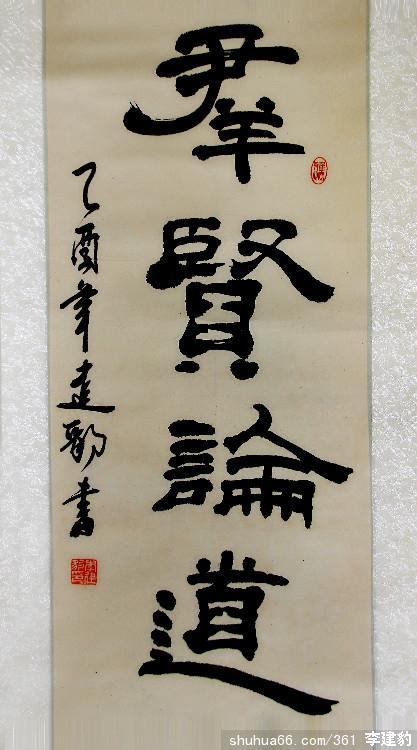 羣賢論道
乙酉年建豹書
shuhua66.com/361 李建豹